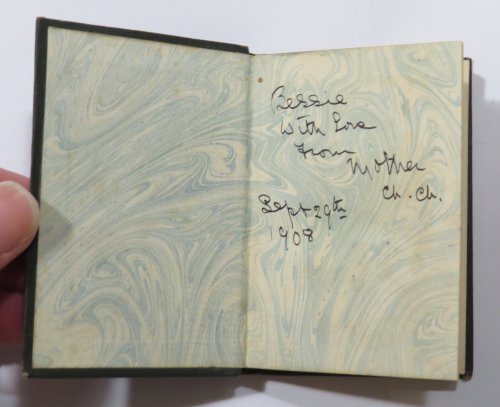 Bessie
With Love
From
Mother
Ch. Ch.
Sept 29th
1908